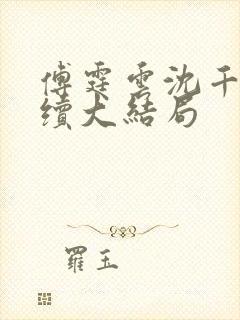 傅霆雲沈千
續大結局
羅玉